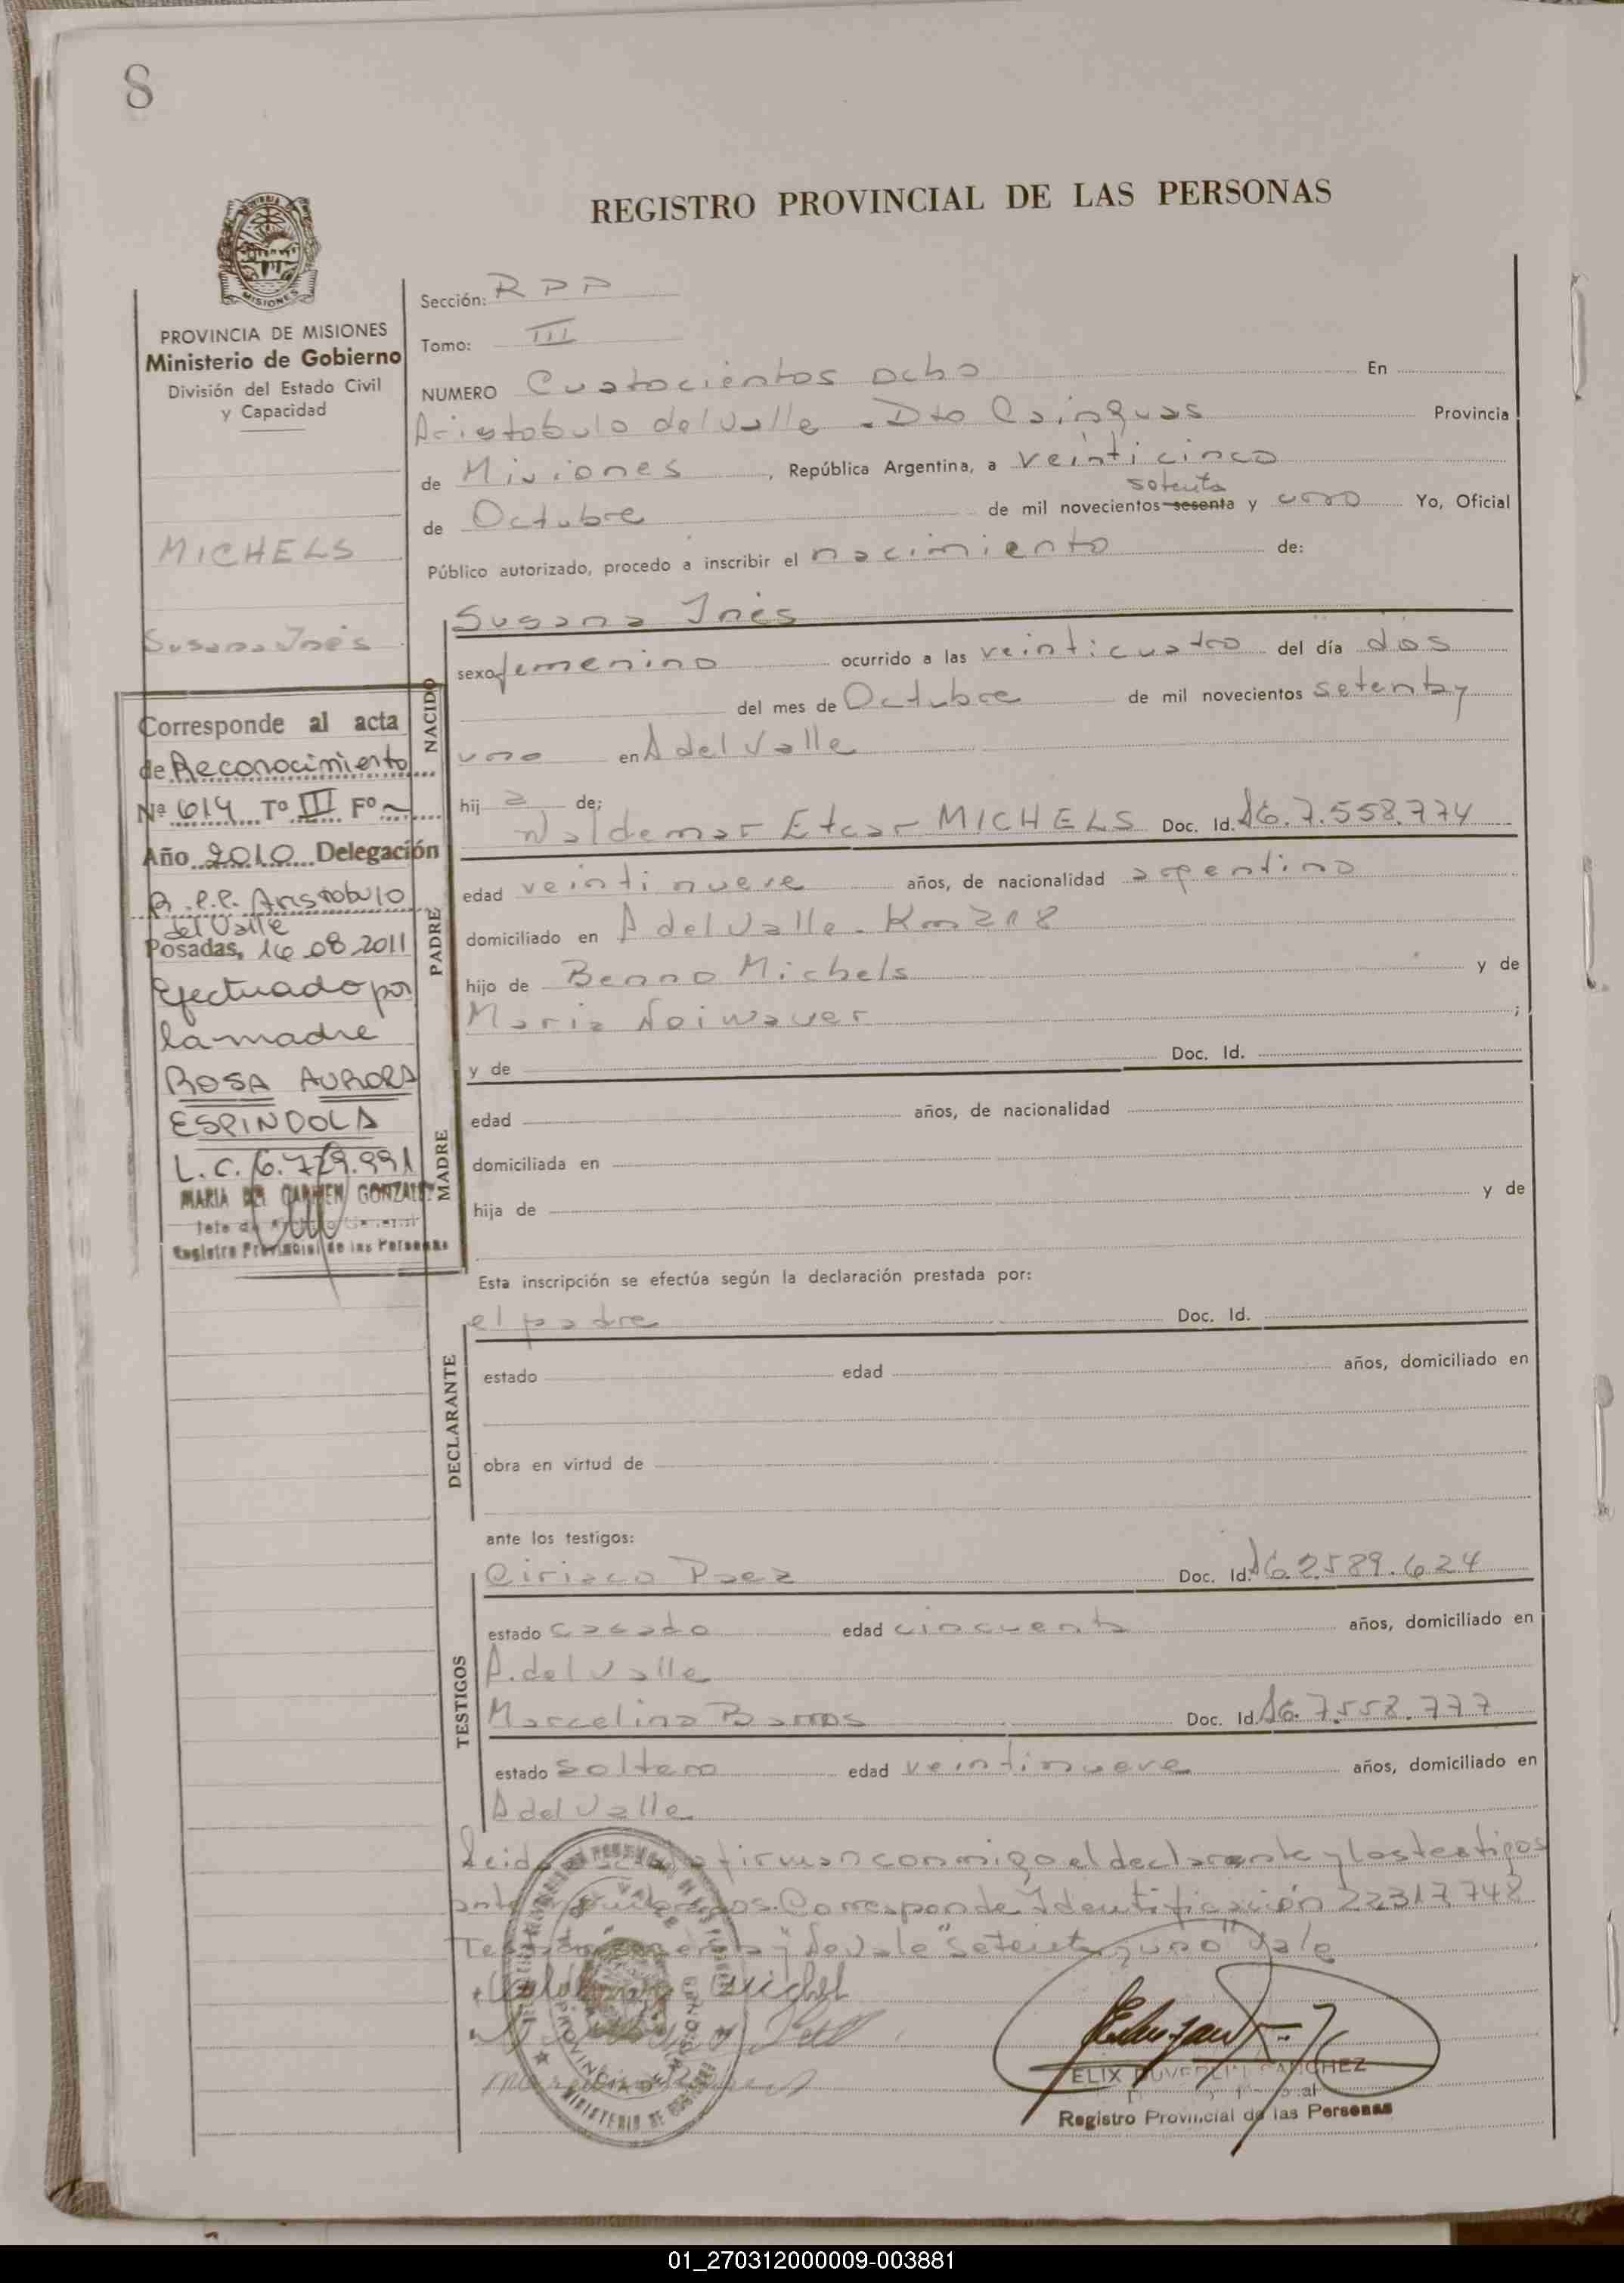 8
REGISTRO PROVINCIAL DE LAS PERSONAS
MISIONES
PROVINCIA DE MISIONES
Ministerio de Gobierno
División del Estado Civil
y Capacidad
MICHELS
Susana Inés
Corresponde al acta
de Reconocimiento
Nº 614 Tº III Fº ~
Año 2010 Delegación
R.P.P. Aristobulo
del Valle
Posadas, 16 08 2011
Efectuado por
la madre
ROSA AURORA
ESPINDOLA
L.C. 6.729.991
MARIA DEL CARMEN GONZALEZ
Registro Provincial de las Personas
Sección: R P P
Tomo: III
NUMERO Cuatocientos ocho En
Aristobulo del Valle - Dto Cainguas Provincia
de Misiones, República Argentina, a veinticinco
setenta
de Octubre de mil novecientos sesenta y uno Yo, Oficial
Público autorizado, procedo a inscribir el nacimiento de:
NACIDO
Susana Inés
sexo femenino ocurrido a las veinticuatro del día dos
del mes de Octubre de mil novecientos setenta y
uno en A del Valle
hij a de:
Waldemar Etcar MICHELS Doc. Id. 7.558.774
PADRE
edad veintinueve años, de nacionalidad argentino
domiciliado en A del Valle - Km 218
hijo de Benno Michels y de
Maria ;
y de Doc. Id.
MADRE
edad años, de nacionalidad
domiciliada en
hija de y de
Esta inscripción se efectúa según la declaración prestada por:
el padre Doc. Id.
DECLARANTE
estado edad años, domiciliado en
obra en virtud de
ante los testigos:
TESTIGOS
Ciriaco Paez Doc. Id. 2.589.624
estado casado edad cincuenta años, domiciliado en
A. del Valle
Marcelino Barros Doc. Id. 7.558.777
estado soltero edad veintinueve años, domiciliado en
A del Valle
Leida firman conmigo el declarante y los testigos
Corresponde Identificación 22317748
"setenta y uno" Vale
Michel
FELIX SANCHEZ
Registro Provincial de las Personas
01_270312000009-003881